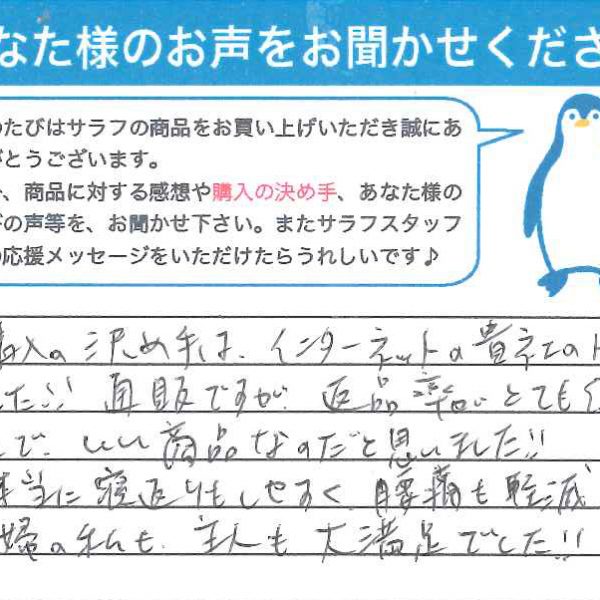 なた様のお声をお聞かせくださ
のたびはサラフの商品をお買い上げいただき誠にあ
がとうございます。
、商品に対する感想や購入の決め手、あなた様の
の声等を、お聞かせ下さい。またサラフスタッフ
の応援メッセージをいただけたらうれしいです♪
購入の決め手は、インターネットの貴社のH
した!! 直販ですが、返品率がとても
で、いい商品なのだと思いました!!
本当に寝返りもしやすく、腰痛も軽減
婦の私も、主人も大満足でした!!